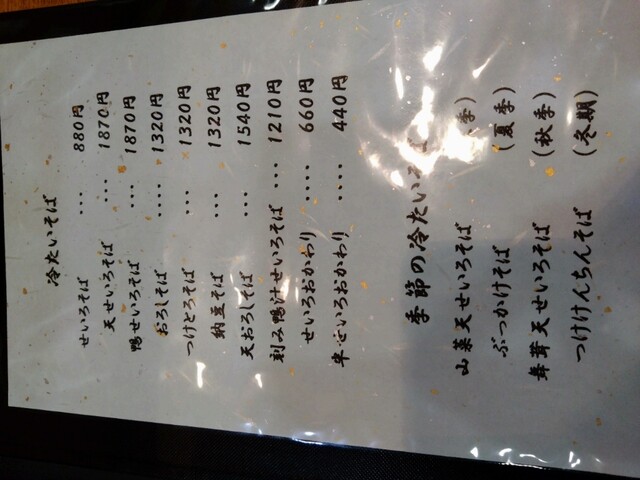 冷たいそば
せいろそば ... 880円
天せいろそば ... 1870円
鴨せいろそば ... 1870円
おろしそば .... 1320円
つけとろそば ... 1320円
納豆そば ... 1320円
天おろしそば ... 1540円
刻み鴨汁せいろそば ... 1210円
せいろおかわり .... 660円
半せいろおかわり .... 440円
季節の冷たいそば
山菜天せいろそば 季)
ぶっかけそば (夏季)
舞茸天せいろそば (秋季)
つけけんちんそば (冬期)